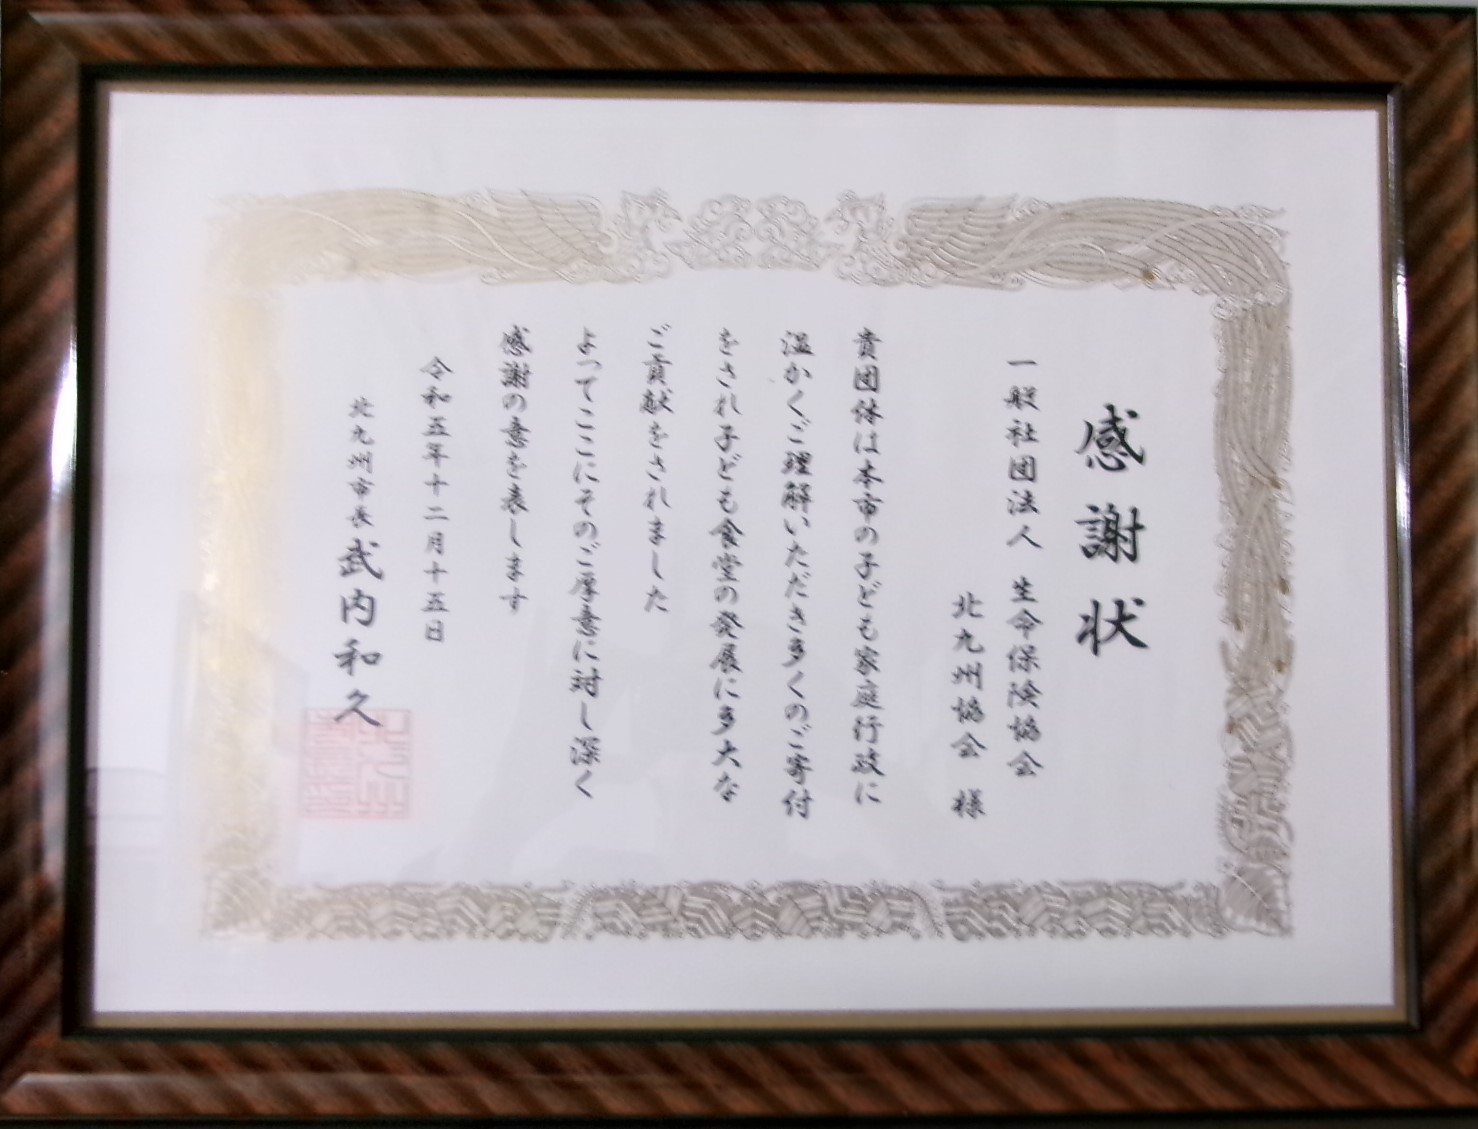 感謝状
一般社団法人 生命保険協会
北九州協会 様
貴団体は本市の子ども家庭行政に
温かくご理解いただき多くのご寄付
をされ子ども食堂の発展に多大な
ご貢献をされました
よってここにそのご厚意に対し深く
感謝の意を表します
令和五年十二月十五日
北九州市長 武内和久